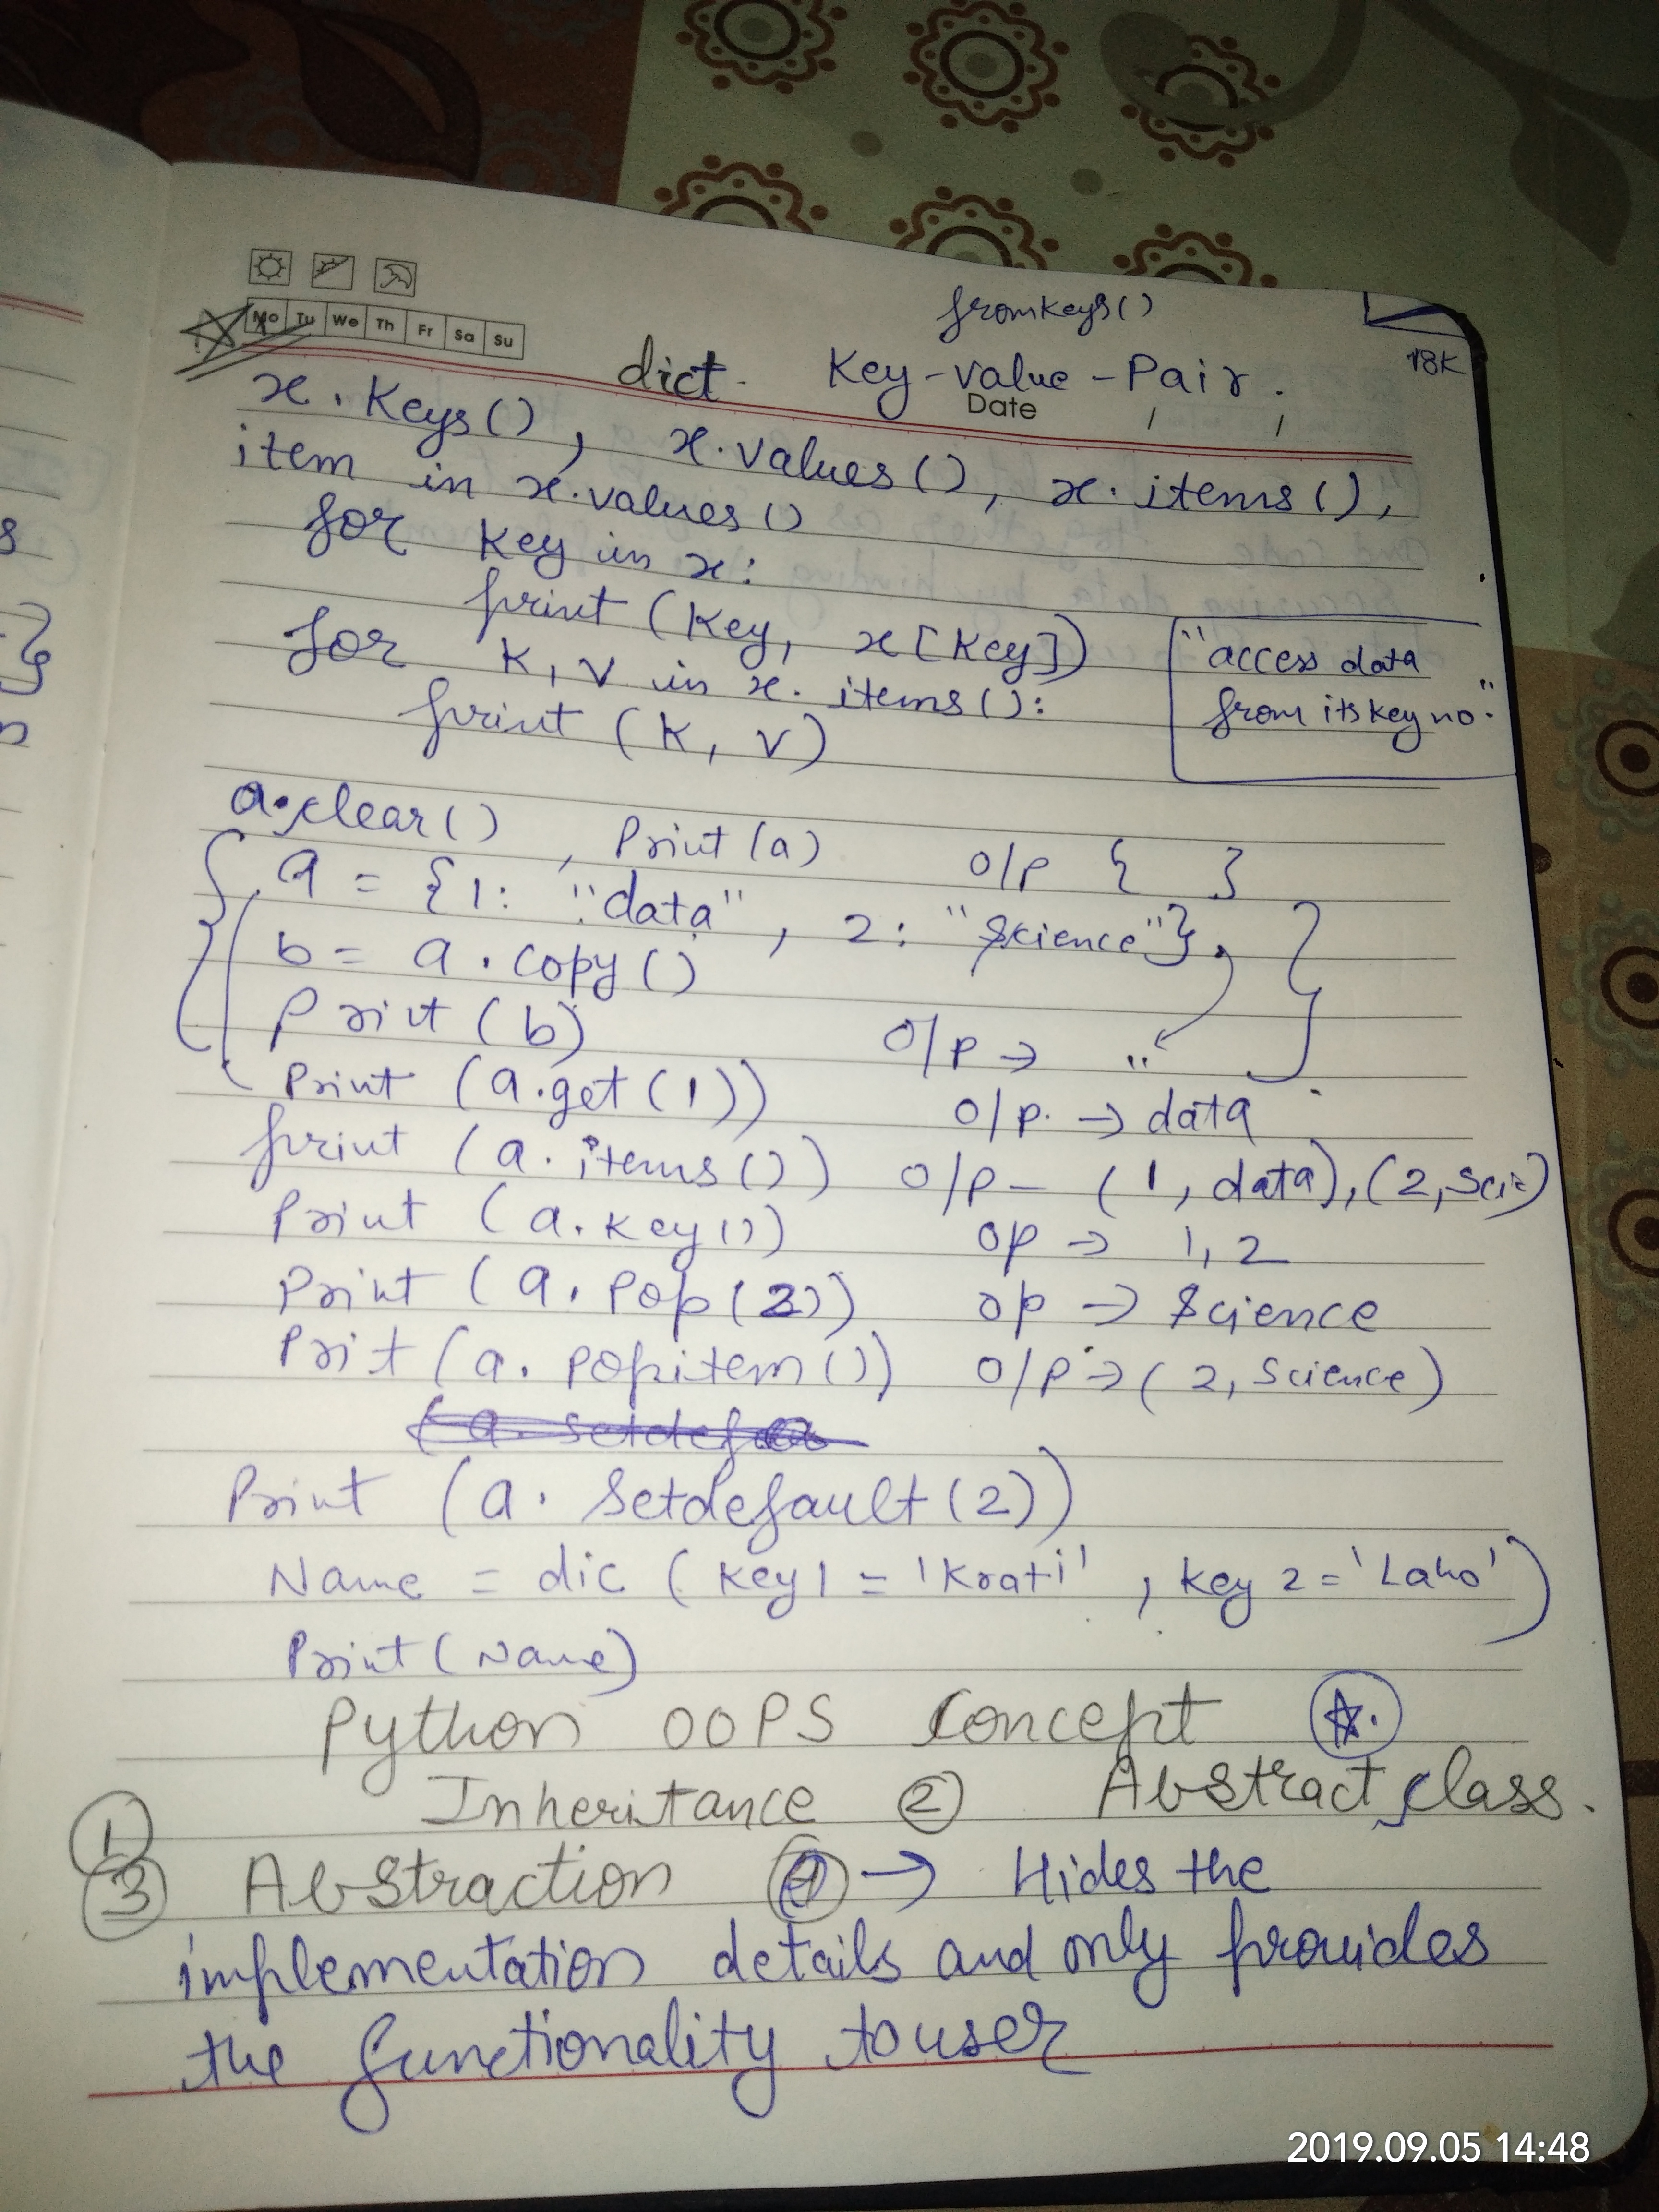 fromkeys()
Mo Tu We Th Fr Sa Su
dict. Key-value-Pair.
18K
Date
x.Keys(), x.values(), x.items(),
item in x.values()
for key in x:
print (Key, x[Key])
for k, v in x.items():
print (k, v)
"access data
from its key no."
a.clear(), Print (a) o/p { }
a = {1: "data", 2: "Science"}
b = a.copy()
Print (b) o/p → "
Print (a.get(1)) o/p. → data
print (a.items()) o/p - (1, data), (2, Sci)
Print (a.key()) op → 1, 2
Print (a.Pop(2)) op → Science
Prit (a.popitem()) o/p → (2, Science)
(a. setdefa
Print (a. Setdefault (2))
Name = dic (key1 = 'Krati', key2 = 'Laho')
Print (Name)
Python OOPS Concept
① Inheritance ② Abstract class.
③ Abstraction ④ → Hides the
implementation details and only provides
the functionality to user
2019.09.05 14:48